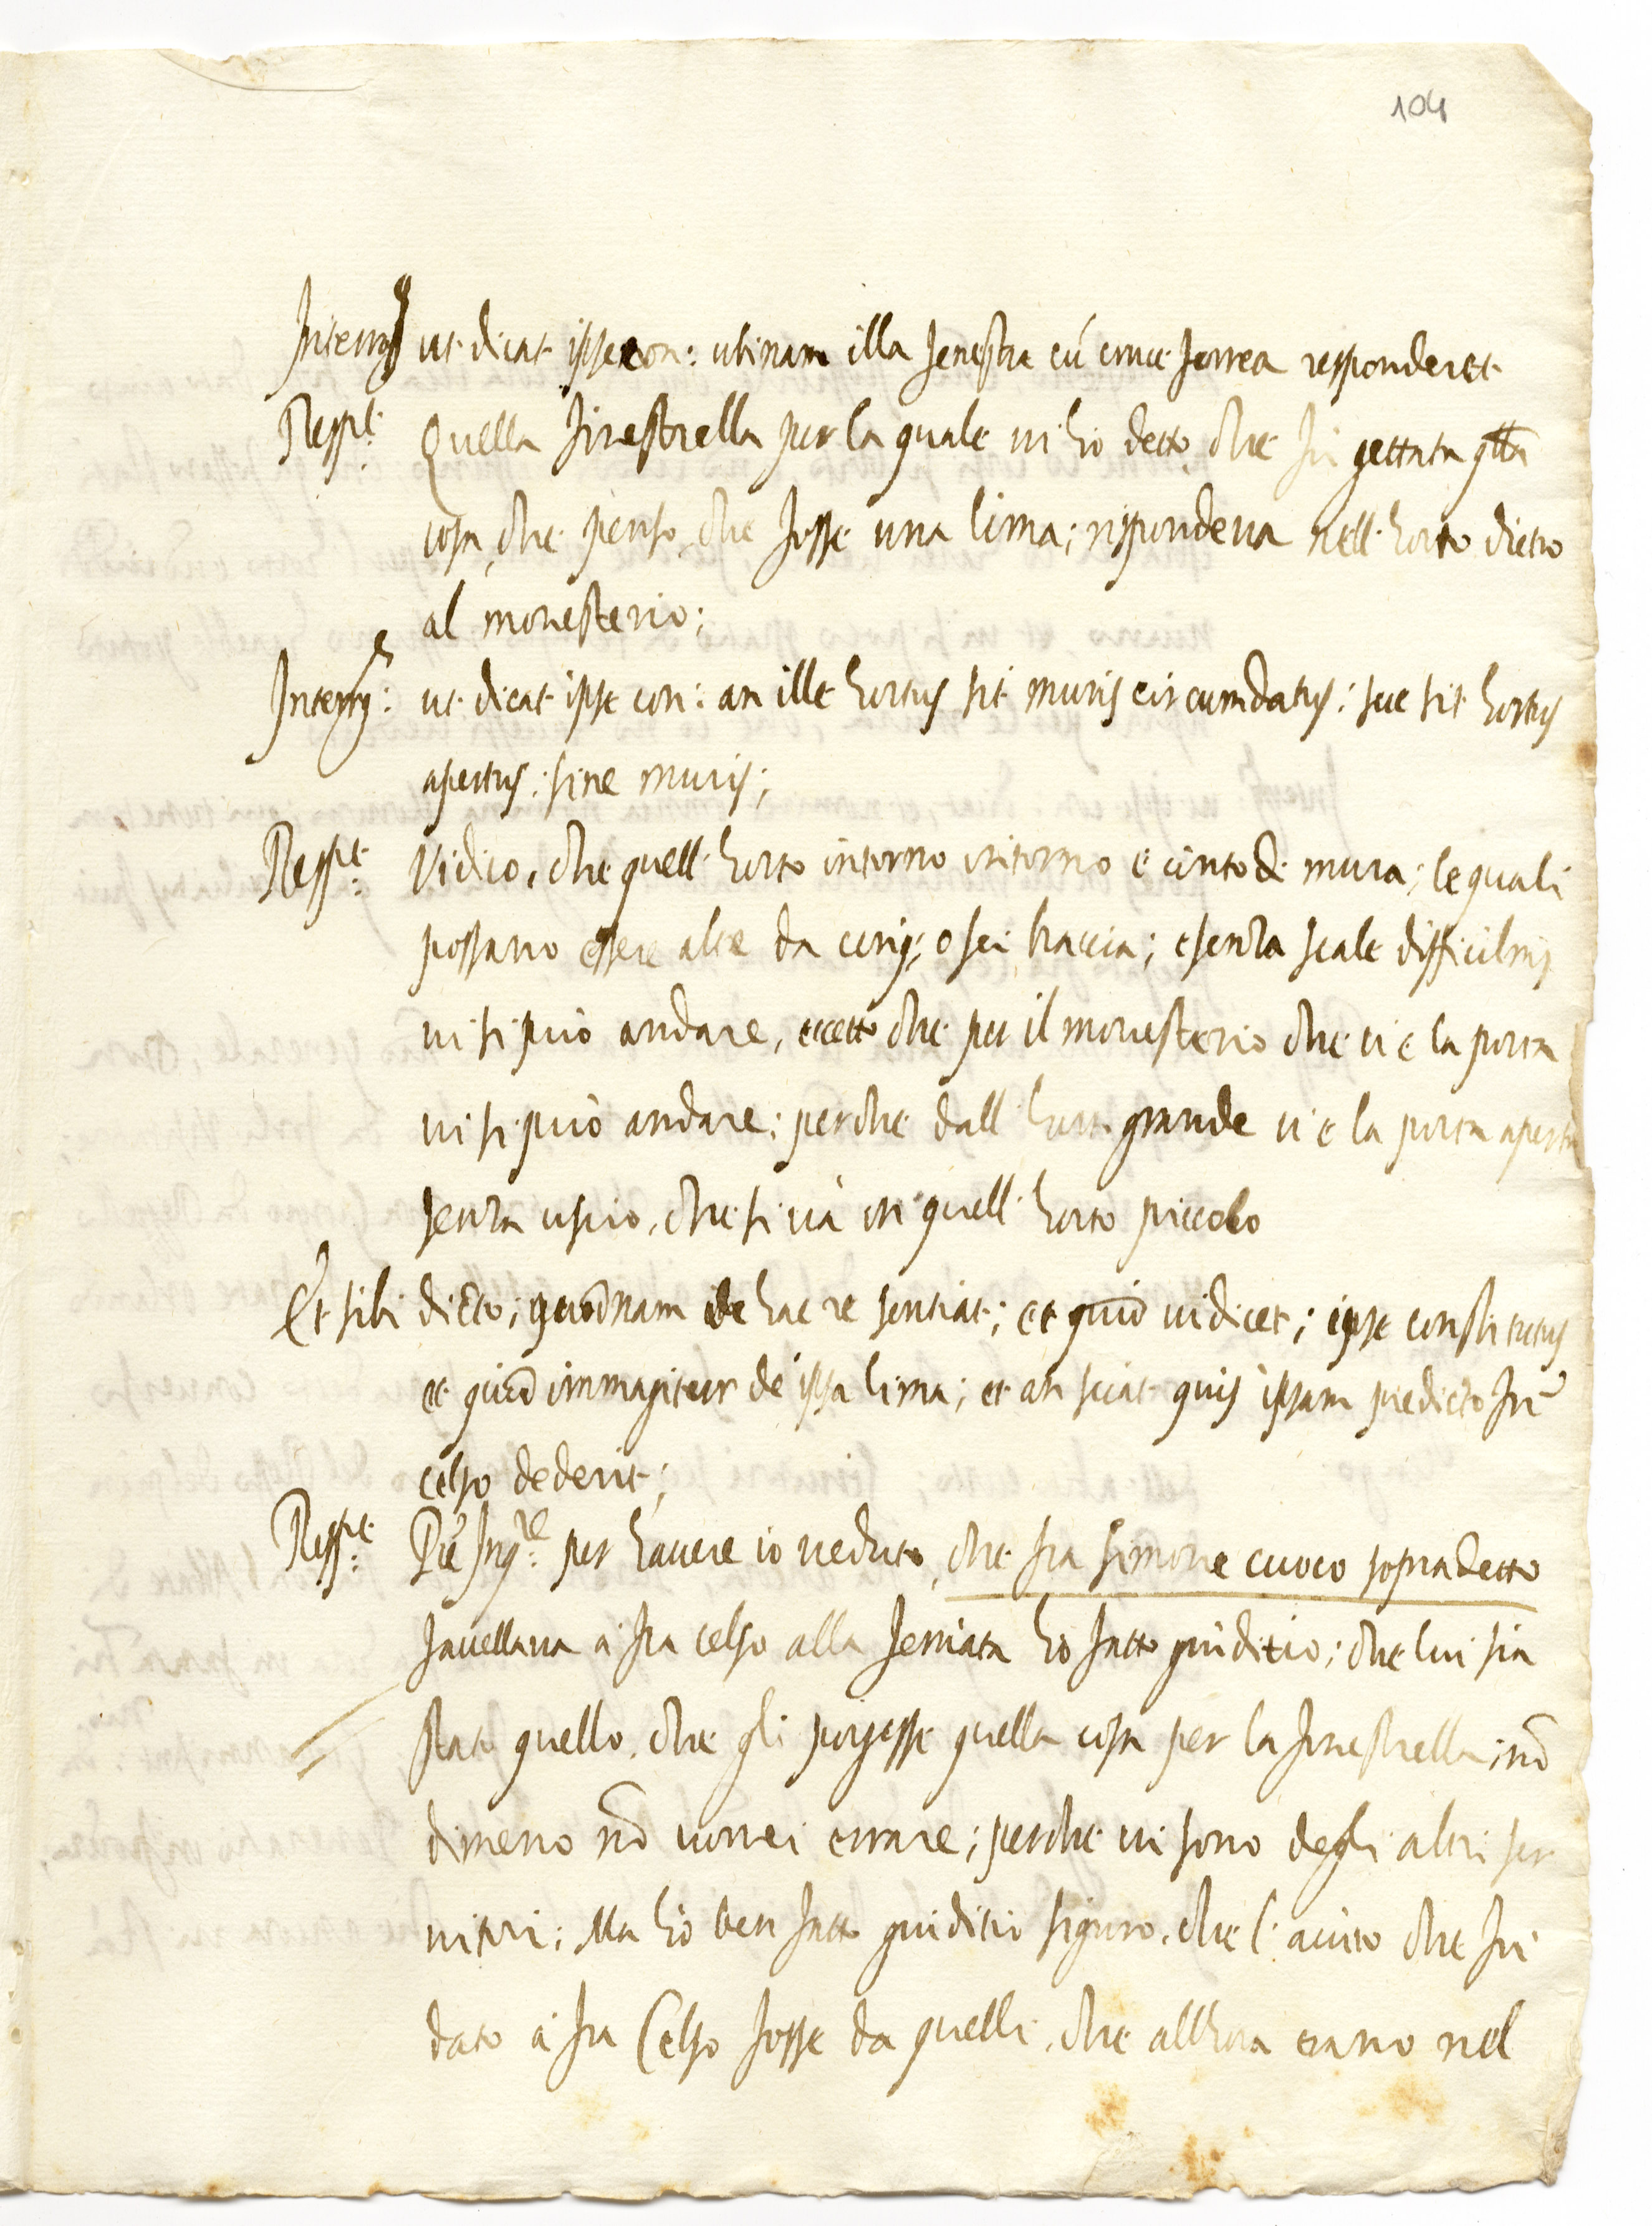 104
Interrg. ut dicat ipse con: ubinam illa fenestra cú cruce ferrea responderet
Resp.t Quella finestrella per la quale vi hò detto, che fu gettata q.tta
cosa, che penso, che fosse una lima; rispondeva nell'horto dietro
al monesterio;
Interrg: ut dicat ipse con: an ille hortus sit muris circumdatus: sue sit hortus
apertus: sine muris;
Resp.t Vi dico, che quell'horto intorno intorno è cinto di mura; le quali
possano essere alte da cinq; o sei braccia; e senza scale difficilm.
vi si può andare, eccetto che per il monesterio che vi è la porta
vi si può andare: perche dall'horto grande vi è la porta aperta
senza uscio, che si và in quell'horto piccolo
Et sibi dicto; quidnam de hac re sentiat; et quid iudicet; ipse constitutus
et quid immagitetur de ipsa lima; et an sciat quis ipsam predicto frí
celso dederit;
Resp.t Pre Inq.re per havere io veduto, che fra simone cuoco sopradetto
favellava à fra celso alla ferriata hò fatto giuditio; che lui sia
stato quello, che gli porgesse quella cosa per la finestrella; nō
dimeno nō vorrei errare; perche vi sono degli altri ser
vitori; Ma hò ben fatto giuditio siguro, che l'aiuto che fu
dato à fra Celso fosse da quelli, che allhora erano nel